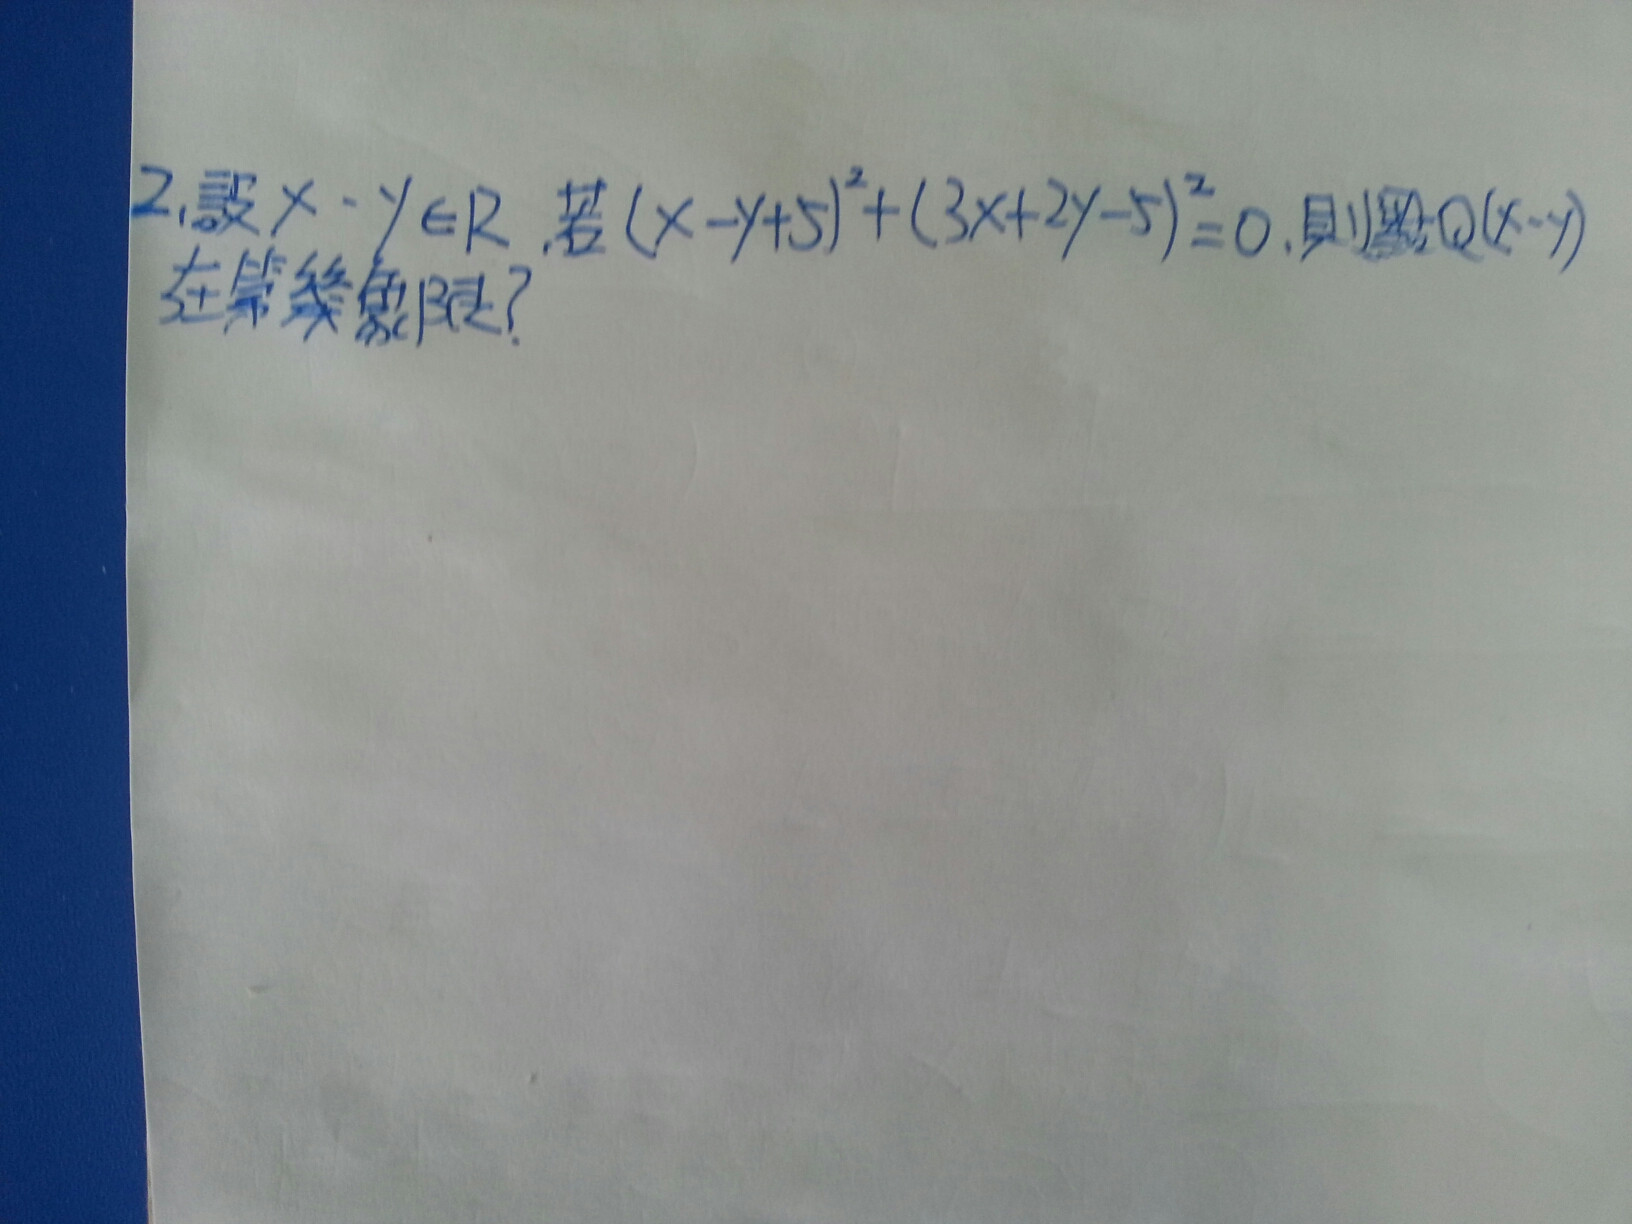 2.設x、y∈R,若(x-y+5)²+(3x+2y-5)²=0,則點Q(x、y)
在第幾象限?